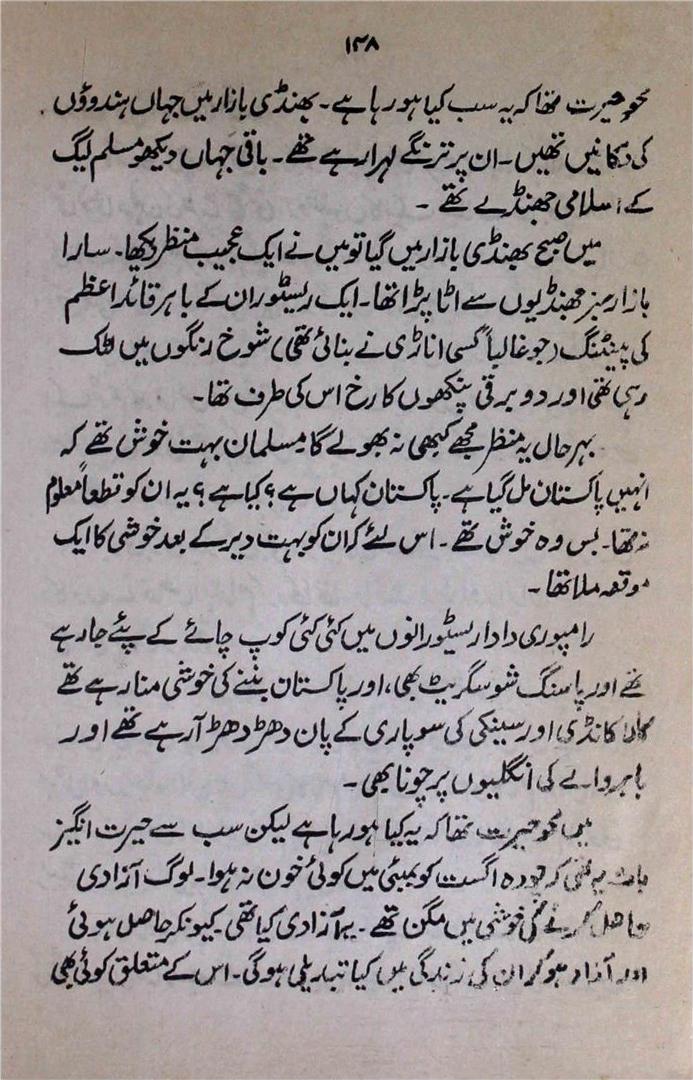 ۱۴۸
محوِ حیرت تھا کہ یہ سب کیا ہو رہا ہے۔ بھنڈی بازار میں جہاں ہندوؤں
کی دکانیں تھیں۔ ان پر ترنگے لہرا رہے تھے۔ باقی جہاں دیکھو مسلم لیگ
کے اسلامی جھنڈے تھے۔
میں صبح بھنڈی بازار میں گیا تو میں نے ایک عجیب منظر دیکھا۔ سارا
بازار سبز جھنڈیوں سے اٹا پڑا تھا۔ ایک ریسٹوران کے باہر قائد اعظم
کی پینٹنگ (جو غالباً کسی اناڑی نے بنائی تھی) شوخ رنگوں میں لٹک
رہی تھی اور دو برقی پنکھوں کا رخ اس کی طرف تھا۔
بہرحال یہ منظر مجھے کبھی نہ بھولے گا مسلمان بہت خوش تھے کہ
انہیں پاکستان مل گیا ہے۔ پاکستان کہاں ہے؟ کیا ہے؟ یہ ان کو قطعاً معلوم
نہ تھا۔ بس وہ خوش تھے۔ اس لئے کہ ان کو بہت دیر کے بعد خوشی کا ایک
موقعہ ملا تھا۔
رامپوری دادا ریسٹورانوں میں کئی کئی کوپ چائے کے پئے جا رہے
تھے اور پاسنگ شو سگریٹ بھی، اور پاکستان بننے کی خوشی منا رہے تھے
کالا کانڈی اور سینکی کی سوپاری کے پان دھڑ دھڑ آ رہے تھے اور
باہر والے کی انگلیوں پر چونا بھی۔
میں محوِ حیرت تھا کہ یہ کیا ہو رہا ہے لیکن سب سے حیرت انگیز
بات یہ تھی کہ چودہ اگست کو بمبئی میں کوئی خون نہ ہوا۔ لوگ آزادی
حاصل کرنے کی خوشی میں مگن تھے۔ یہ آزادی کیا تھی۔ کیونکر حاصل ہوئی
اور آزاد ہو کر ان کی زندگی میں کیا تبدیلی ہوگی۔ اس کے متعلق کوئی بھی